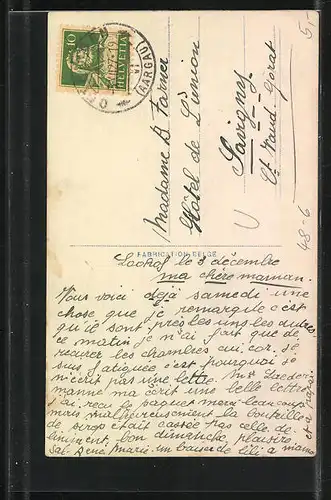 10
HELVETIA
(AARGAU)
Madame D. Farner
Hôtel de L'union
Savigny
Ct Vaud
48-6
FABRICATION BELGE
le 8 décembre
ma chère maman.
Vous voici déjà samedi une
chose que je remarque c'est
qu'ils sont près les uns des autres
ce matin je n'ai fait que de
récurer les chambres cor. se
suis fatiguée c'est pourquoi je
n'écrit pas une lettre.
manne ma écrit une belle lettre
j'ai reçu le paquet merci beaucoup
mais malheureusement la bouteille
de sirop était cassée pas celle de
bon dimanche, plaisir
Marie. un baiser de lili a mama